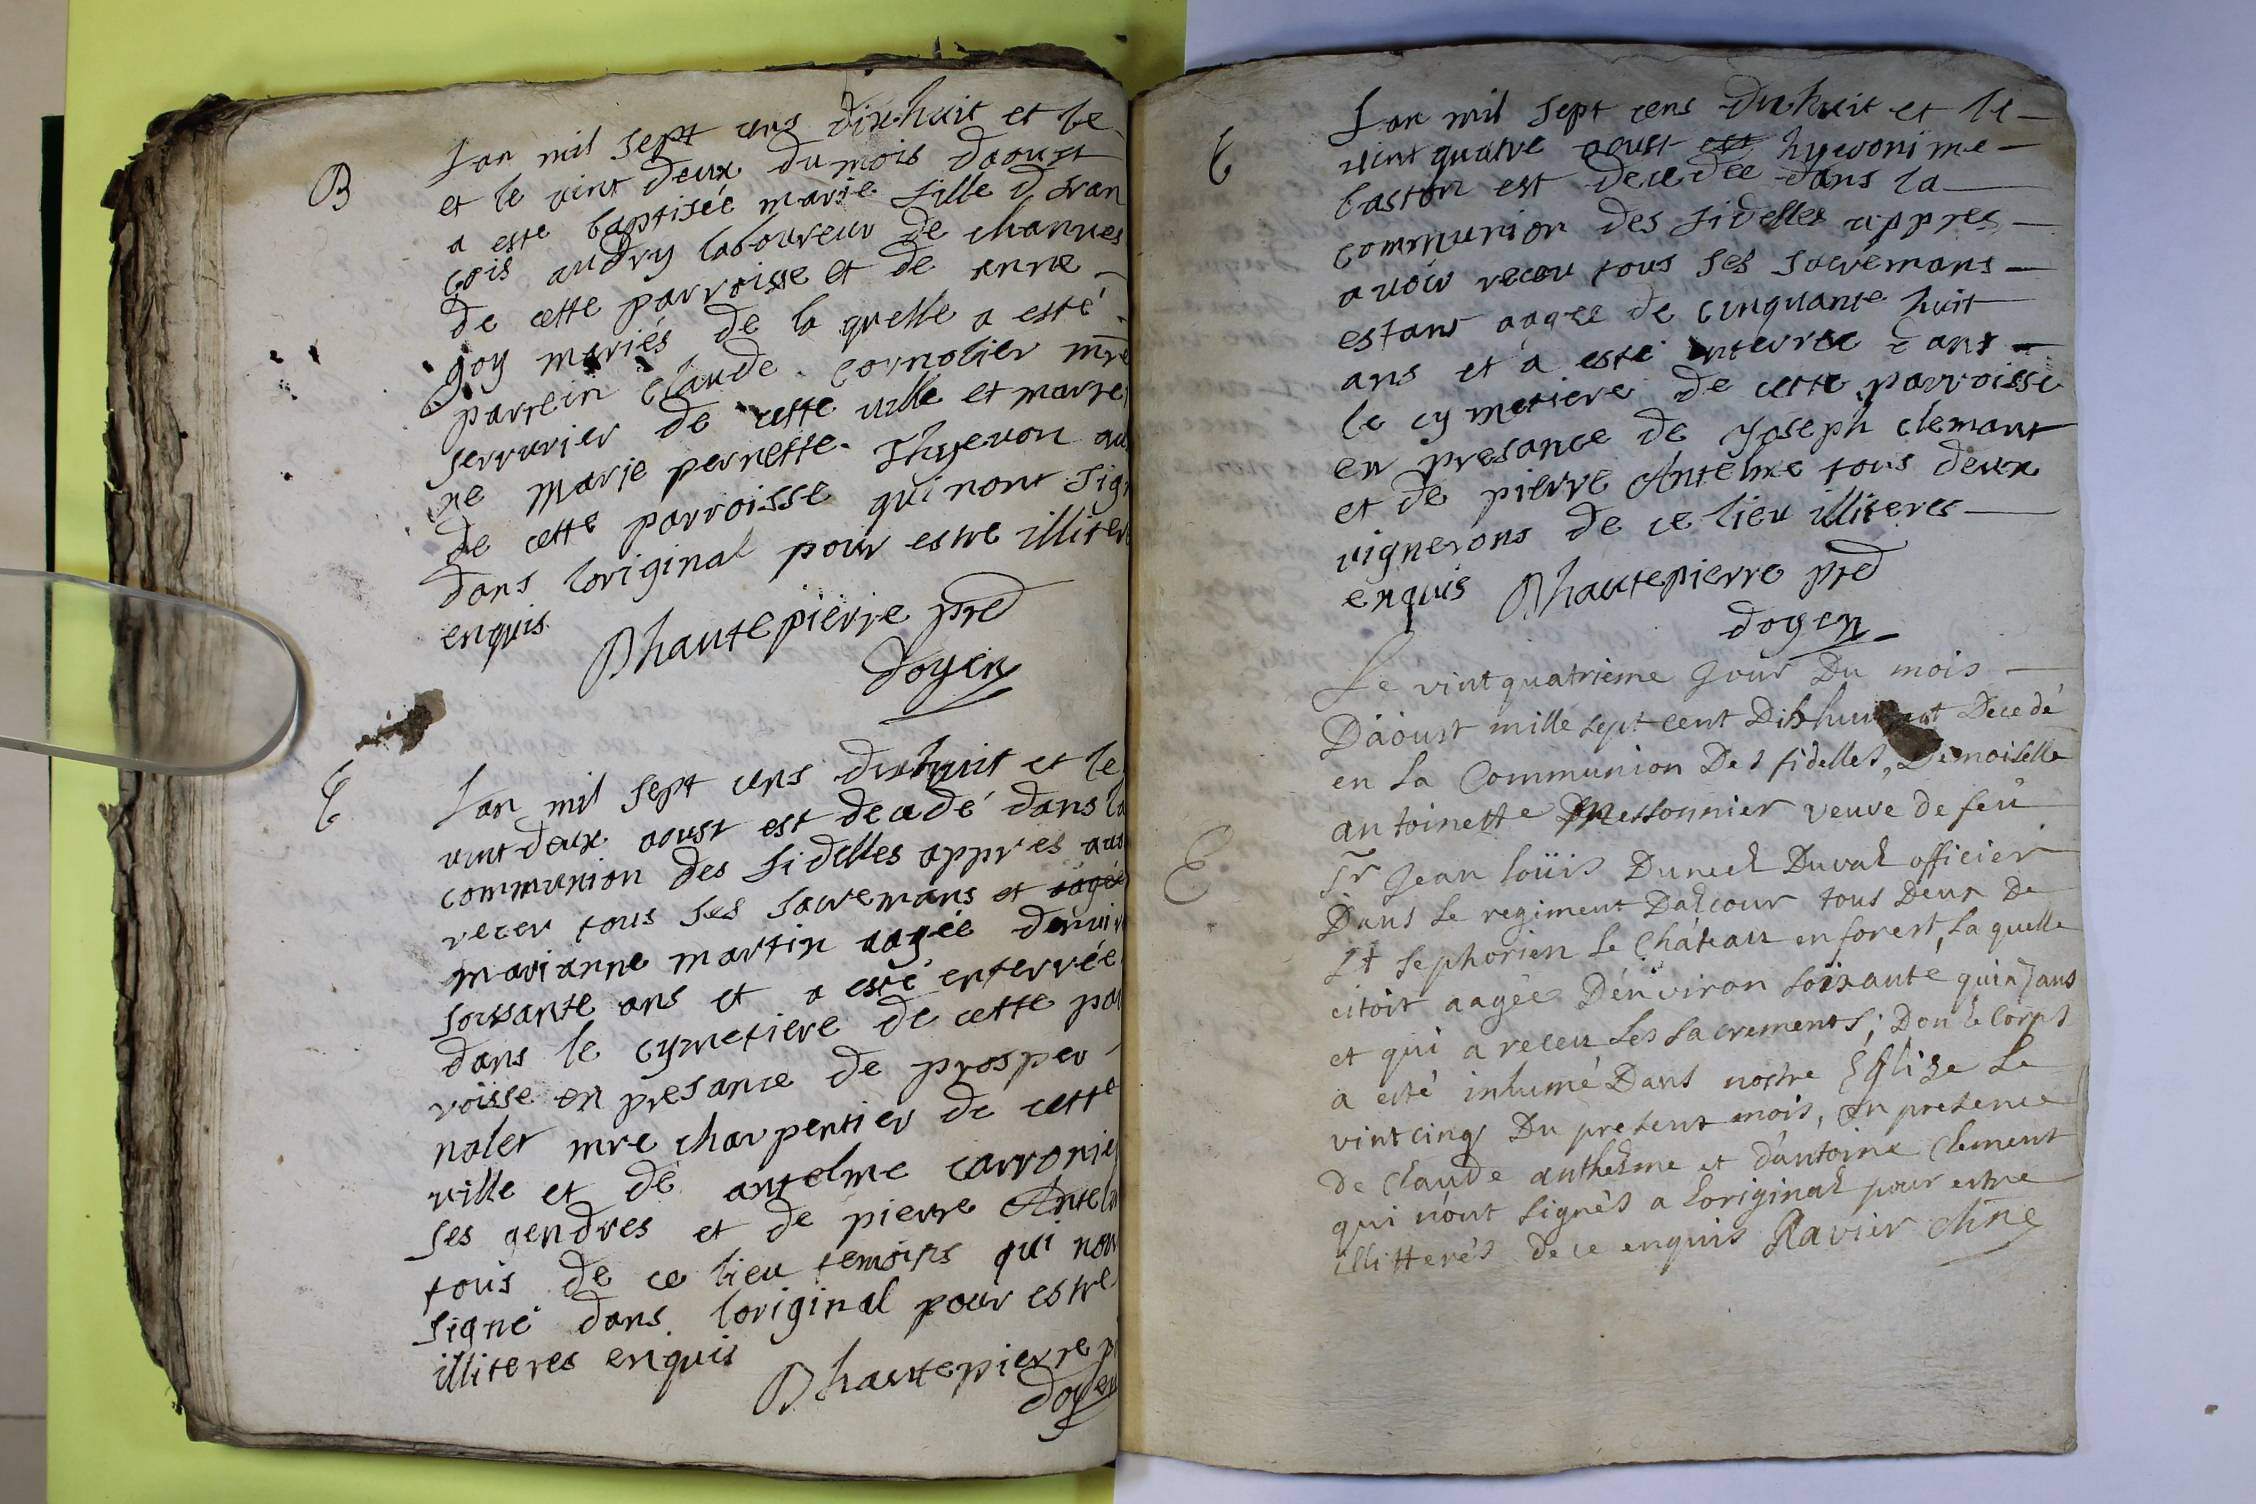 B
Lan mil sept cens dixhuit et le
et le vint deux du mois daoust
a esté baptiséé marie fille d fran
çois audry laboureur de channes
de cette parroisse et de anne
goy mariés de la quelle a esté
parrein claude cornolier mre
serrurier de cette ville et marre
ne marie pernette Thyevon au
de cette parroisse qui nont sig
dans loriginal pour estre illiter
enquis
Dhautepierre pre
doyen
E
Lan mil sept cens dixhuit et le
vint deux aoust est decedé dans la
communion des fidelles appres avo
receu tous ses sacremans et aagée
marianne martin aagéé denvir
soissante ans et a esté enterréé
dans le cymetiere de cette par
roisse en presance de prosper
nolet mre charpentier de cette
ville et de antelme carronie
ses gendres et de pierre Antelm
tous de ce lieu temoins qui non
signé dans loriginal pour estre
illiteres enquis
Dhautepierre p
doyen
E
Lan mil sept cens dixhuit et le
vint quatre aoust est hyeronime
baston est decedee dans la
communion des fidelles appres
avoir receu tous ses sacremans
estant aagee de cinquante huit
ans et a esté enterree dans
le cymetiere de cette parroisse
en presance de Joseph clemant
et de pierre Antelme tous deux
vignerons de ce lieu illiteres
enquis Dhautepierre pre
doyen
Le vintquatrieme Jour Du mois
D'aoust mille sept cent Dixhuit est Decedé
en la Communion Des fidelles, Demoiselle
antoinette Messonnier veuve de feu
E
Sr Jean loüis Dunel Duval officier
Dans le regiment Dalcour tous Deux De
St sephorien le Château en forest, la quelle
etoit aagée D'environ soixante quinz ans
et qui a receu les sacrements; Dont le Corps
a eté inhumé Dans nostre Eglise le
vintcinq Du present mois, en presence
de Claude anthelme et d'antoine Clement
qui n'ont signés a l'original pour estre
illitterés de ce enquis Ravier chne